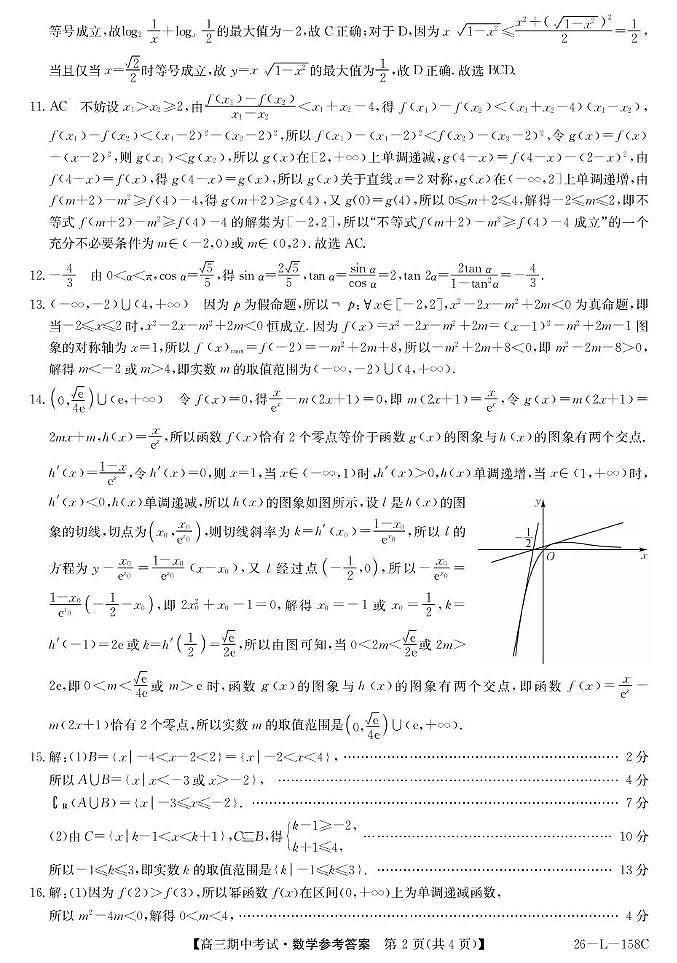 等号成立,故log₂ 1/x + logₓ 1/2 的最大值为−2,故 C 正确;对于 D,因为 x √(1−x²) ≤ (x²+(√(1−x²))²)/2 = 1/2,
当且仅当 x=√2/2 时等号成立,故 y=x √(1−x²) 的最大值为 1/2,故 D 正确.故选 BCD.
11. AC 不妨设 x₁>x₂≥2,由 (f(x₁)−f(x₂))/(x₁−x₂) <x₁+x₂−4,得 f(x₁)−f(x₂)<(x₁+x₂−4)(x₁−x₂),
f(x₁)−f(x₂)<(x₁−2)²−(x₂−2)²,所以 f(x₁)−(x₁−2)²<f(x₂)−(x₂−2)²,令 g(x)=f(x)
−(x−2)²,则 g(x₁)<g(x₂),所以 g(x)在[2,+∞)上单调递减,g(4−x)=f(4−x)−(2−x)²,由
f(4−x)=f(x),得 g(4−x)=g(x),所以 g(x)关于直线x=2 对称,g(x)在(−∞,2]上单调递增,由
f(m+2)−m²≥f(4)−4,得 g(m+2)≥g(4),又 g(0)=g(4),所以 0≤m+2≤4,解得−2≤m≤2,即不
等式 f(m+2)−m²≥f(4)−4 的解集为[−2,2],所以“不等式f(m+2)−m²≥f(4)−4 成立”的一个
充分不必要条件为 m∈(−2,0)或 m∈(0,2).故选 AC.
12. −4/3 由 0<α<π,cos α=√5/5,得 sin α=2√5/5,tan α=sin α/cos α=2,tan 2α=2tan α/(1−tan²α)=−4/3.
13. (−∞,−2)∪(4,+∞) 因为 p 为假命题,所以¬ p:∀x∈[−2,2],x²−2x−m²+2m<0 为真命题,即
当−2≤x≤2 时,x²−2x−m²+2m<0 恒成立.因为 f(x)=x²−2x−m²+2m=(x−1)²−m²+2m−1 图
象的对称轴为 x=1,所以 f(x)max=f(−2)=−m²+2m+8,所以−m²+2m+8<0,即 m²−2m−8>0,
解得 m<−2 或 m>4,即实数 m 的取值范围为(−∞,−2)∪(4,+∞).
14. (0,√e/4e)∪(e,+∞) 令 f(x)=0,得 x/eˣ−m(2x+1)=0,即 m(2x+1)=x/eˣ,令 g(x)=m(2x+1)=
2mx+m,h(x)=x/eˣ,所以函数 f(x)恰有 2 个零点等价于函数 g(x)的图象与 h(x)的图象有两个交点.
h′(x)=(1−x)/eˣ,令 h′(x)=0,则 x=1,当 x∈(−∞,1)时,h′(x)>0,h(x)单调递增,当 x∈(1,+∞)时,
h′(x)<0,h(x)单调递减,所以 h(x)的图象如图所示,设 l 是 h(x)的图
象的切线,切点为(x₀,x₀/e^(x₀)),则切线斜率为 k=h′(x₀)=(1−x₀)/e^(x₀),所以 l 的
方程为 y−x₀/e^(x₀)=(1−x₀)/e^(x₀) (x−x₀),又 l 经过点(−1/2,0),所以−x₀/e^(x₀)=
(1−x₀)/e^(x₀) (−1/2−x₀),即 2x₀²+x₀−1=0,解得 x₀=−1 或 x₀=1/2,k=
h′(−1)=2e 或 k=h′(1/2)=√e/2e,所以由图可知,当 0<2m<√e/2e 或 2m>
2e,即 0<m<√e/4e 或 m>e 时,函数 g(x)的图象与 h(x)的图象有两个交点,即函数 f(x)=x/eˣ−
m(2x+1)恰有 2 个零点,所以实数 m 的取值范围是(0,√e/4e)∪(e,+∞).
y
−1/2
O
x
15. 解:(1)B={x|−4<x−2<2}={x|−2<x<4}, …… 2 分
所以 A∪B={x|x<−3 或 x>−2}, …… 4 分
∁R(A∪B)={x|−3≤x≤−2}. …… 7 分
(2)由 C={x|k−1<x<k+1},C⊆B,得 {k−1≥−2, k+1≤4, …… 10 分
所以−1≤k≤3,即实数 k 的取值范围是{k|−1≤k≤3}. …… 13 分
16. 解:(1)因为 f(2)>f(3),所以幂函数 f(x)在区间(0,+∞)上为单调递减函数,
所以 m²−4m<0,解得 0<m<4, …… 4 分
【高三期中考试·数学参考答案 第 2 页(共 4 页)】 26−L−158C